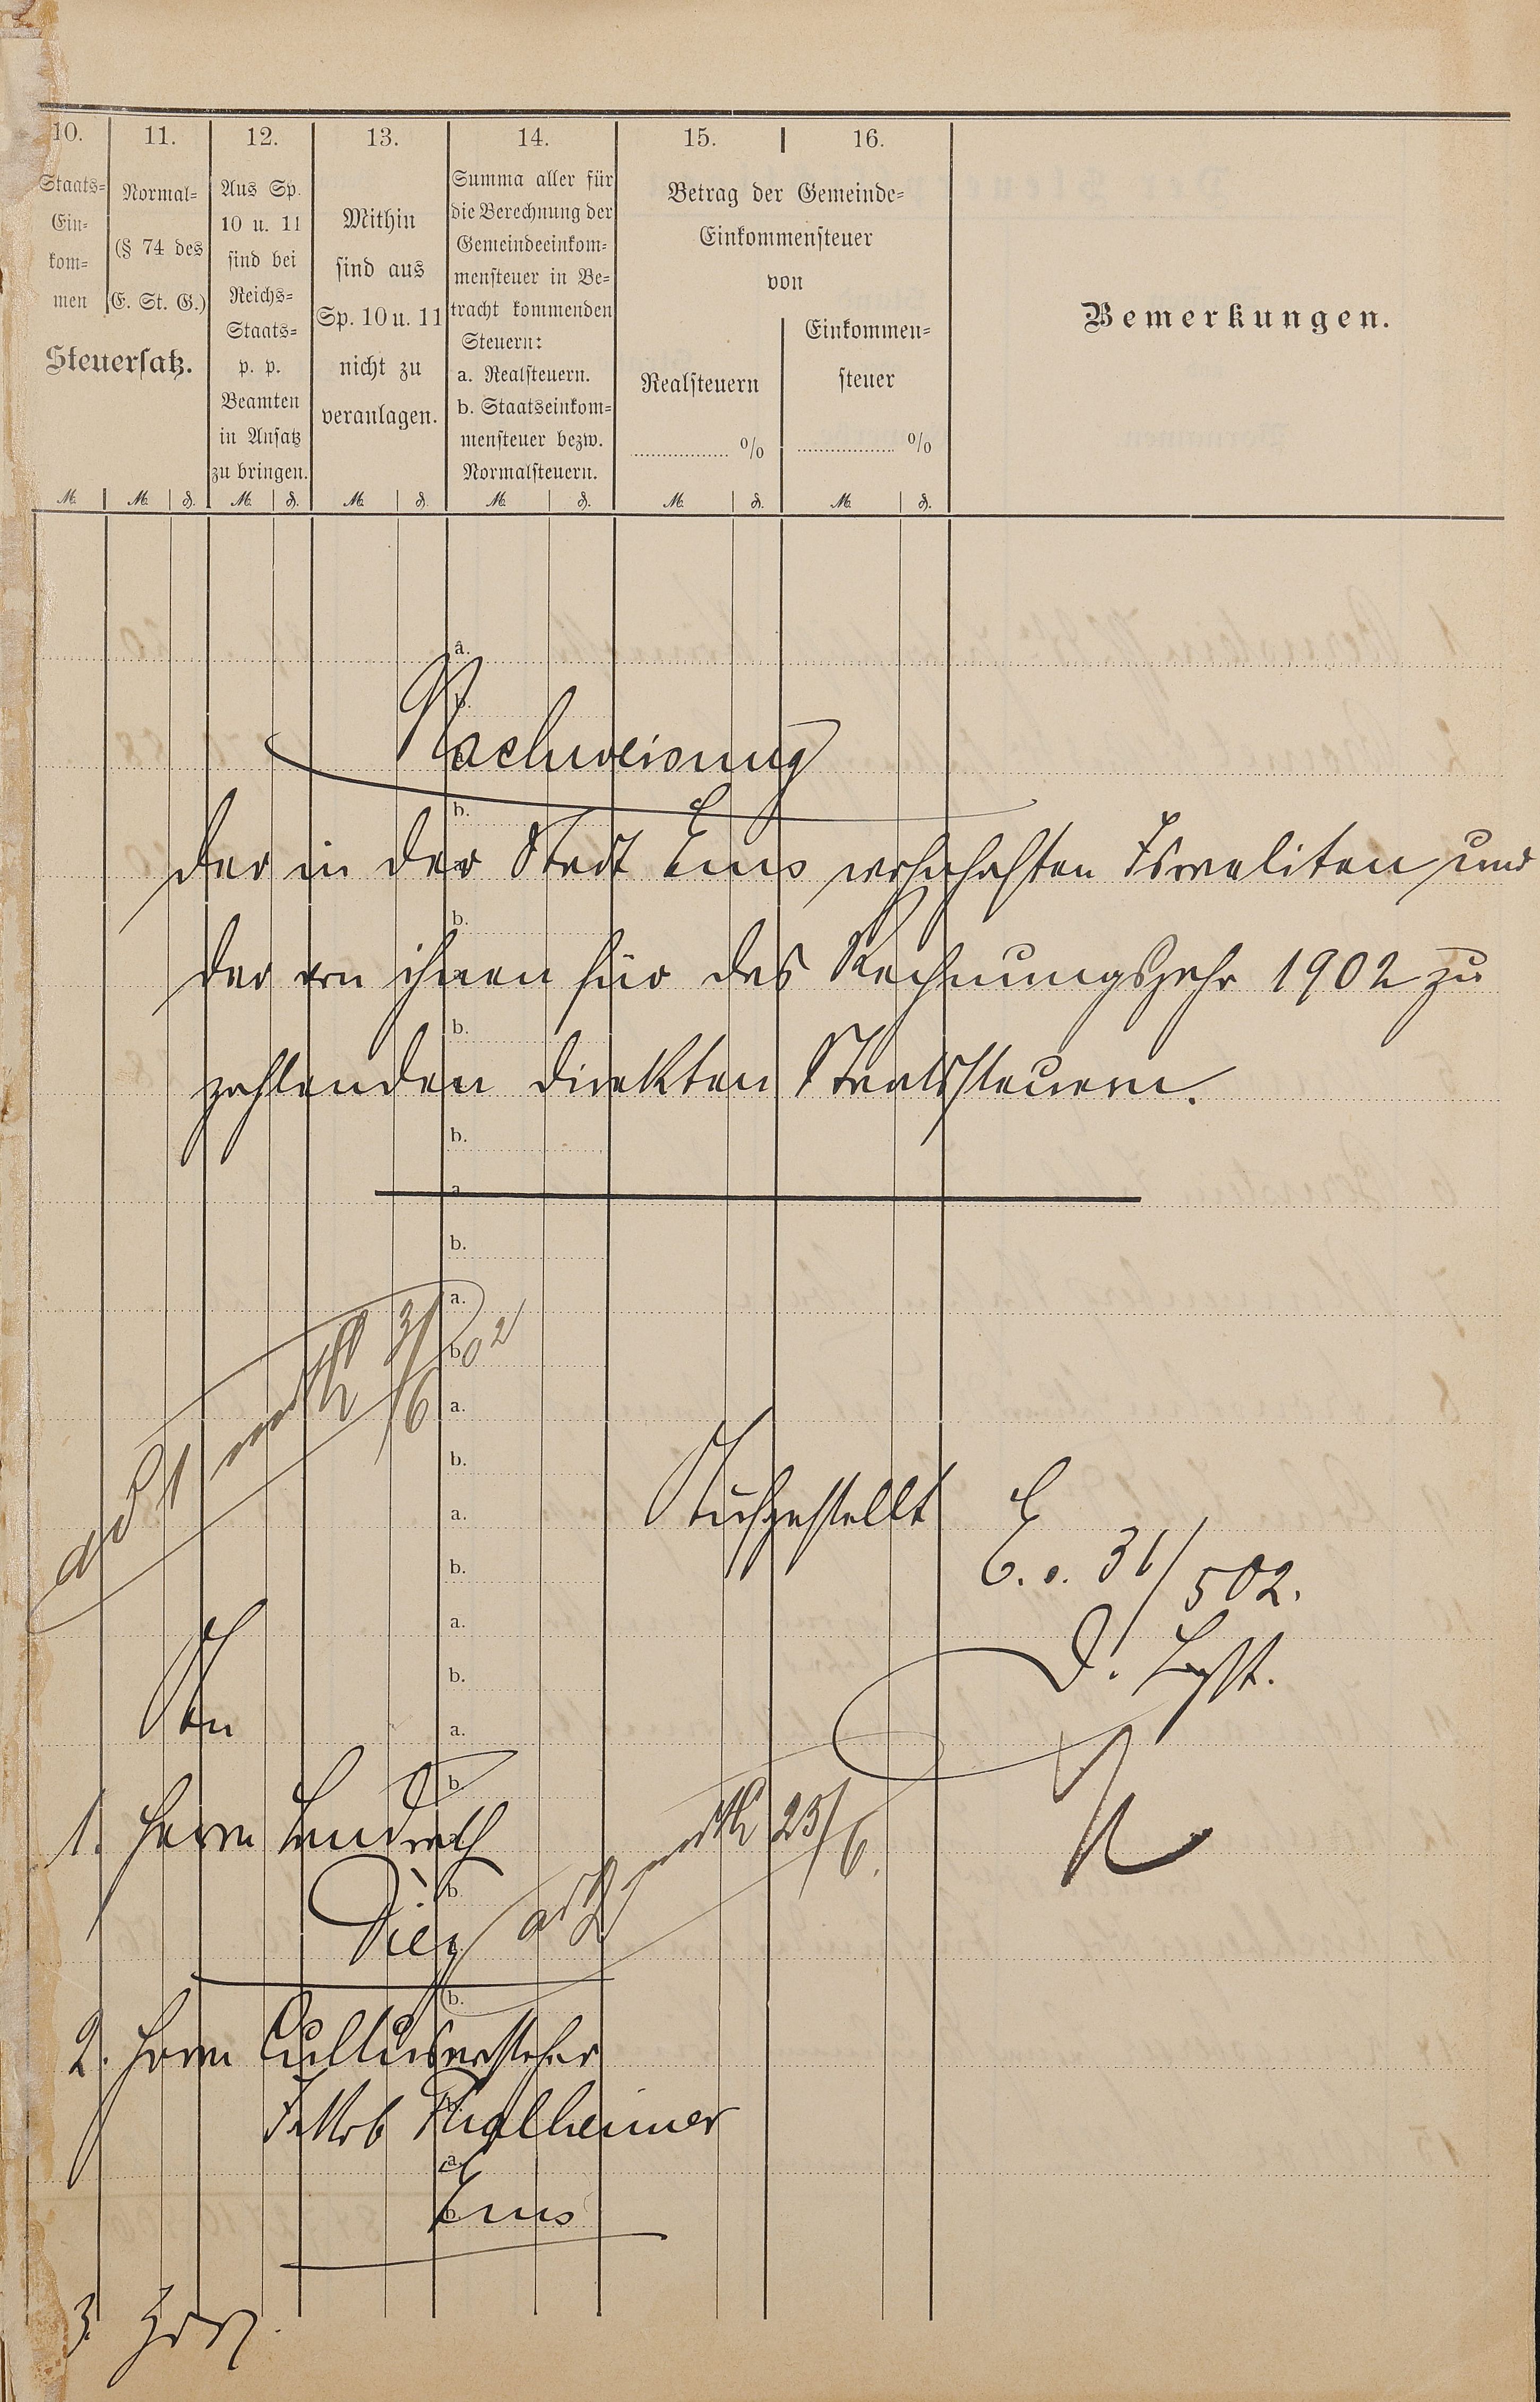 10.
Staats=
Ein=
kom=
men
11.
Normal=
(§ 74 des
E. St. G.)
Steuersatz.
12.
Aus Sp.
10 u. 11
sind bei
Reichs=
Staats=
p. p.
Beamten
in Ansatz
zu bringen.
13.
Mithin
sind aus
Sp. 10 u. 11
nicht zu
veranlagen.
14.
Summa aller für
die Berechnung der
Gemeindeeinkom=
mensteuer in Be=
tracht kommenden
Steuern:
a. Realsteuern.
b. Staatseinkom=
mensteuer bezw.
Normalsteuern.
15. 16.
Betrag der Gemeinde=
Einkommensteuer
von
Realsteuern
%
Einkommen=
steuer
%
Bemerkungen.
M. M. ₰. M. ₰. M. ₰. M. ₰. M. ₰. M. ₰.
Nachweisung
der in der Stadt Ems wohnhaften Israeliten und
der von ihnen für das Rechnungsjahr 1902 zu
zahlenden direkten Staatssteuern.
ad 1 3/6 02
Aufgestellt
E. d. 31/5 02.
D. Mgst.
An
1. Herrn Landrath
Diez
ad 2 25/6.
2. Herrn Cultusvorsteher
Jakob Thalheimer
Ems
3.